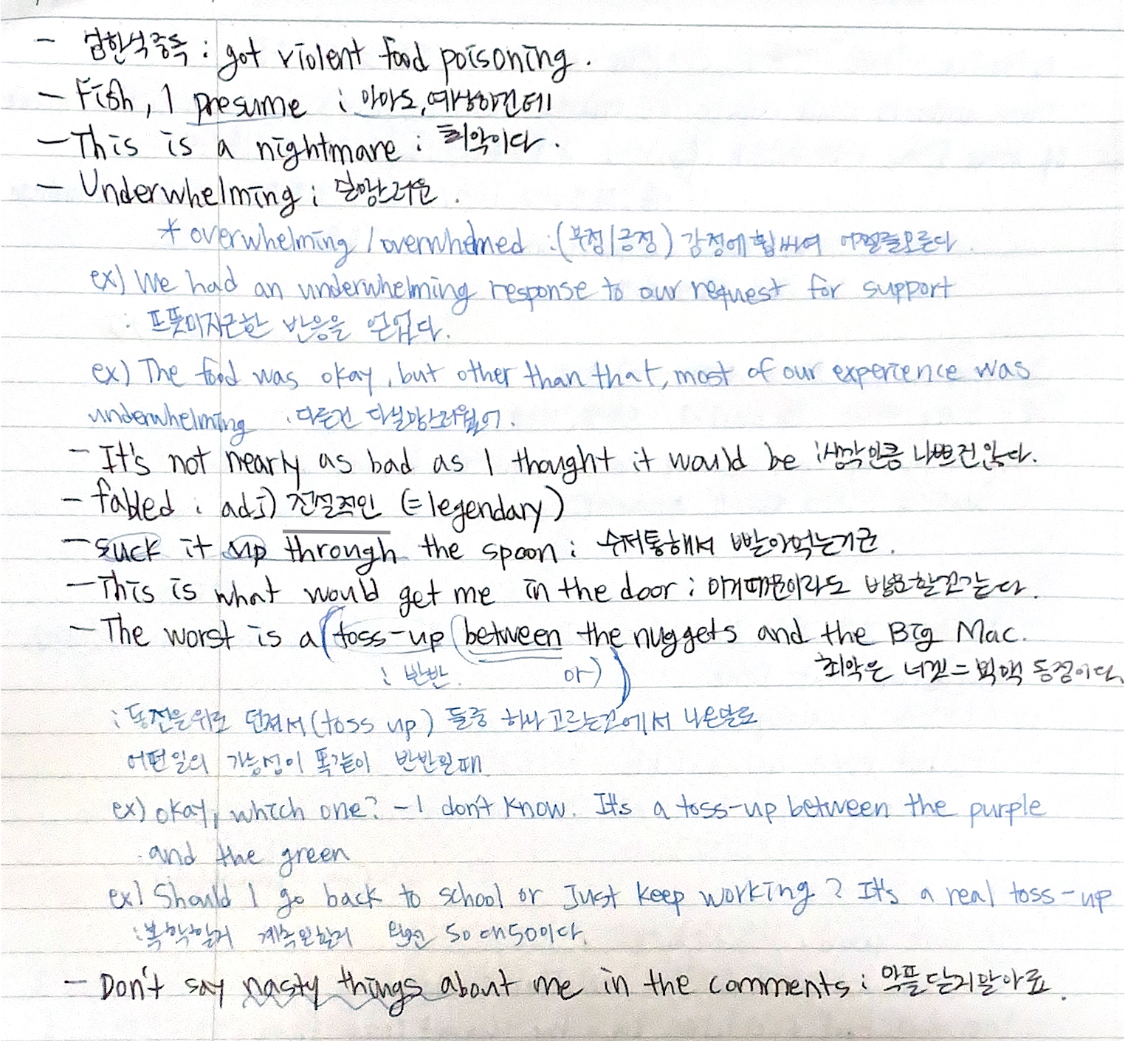 - 심한식중독 : got violent food poisoning.
- Fish, I presume : 아마도, 예상하건테
- This is a nightmare : 최악이다.
- Underwhelming : 실망스러운.
* overwhelming / overwhelmed : (부정/긍정) 감정에 휩싸여 어쩔줄모른다
ex) We had an underwhelming response to our request for support
: 뜨뜻미지근한 반응을 얻었다.
ex) The food was okay, but other than that, most of our experience was
underwhelming : 다른건 다실망스러웠어.
- It's not nearly as bad as I thought it would be : 생각만큼 나쁘진않다.
- fabled : adj) 전설적인 (=legendary)
- suck it up through the spoon : 수저통해서 빨아먹는기분.
- This is what would get me in the door : 이거때문이라도 방문할것같다.
- The worst is a (toss-up (between the nuggets and the Big Mac.
: 반반. 아) 최악은 너겟=빅맥 동점이다.
: 동전을위로 던져서(toss up) 둘중 하나 고르는것에서 나온말로
어떤일의 가능성이 똑같이 반반일때
ex) okay, which one? - I don't know. It's a toss-up between the purple
and the green
ex) Should I go back to school or Just keep working? It's a real toss-up
: 복학할지 계속일할지 완전 50대50이다.
- Don't say nasty things about me in the comments : 악플달지말아요.